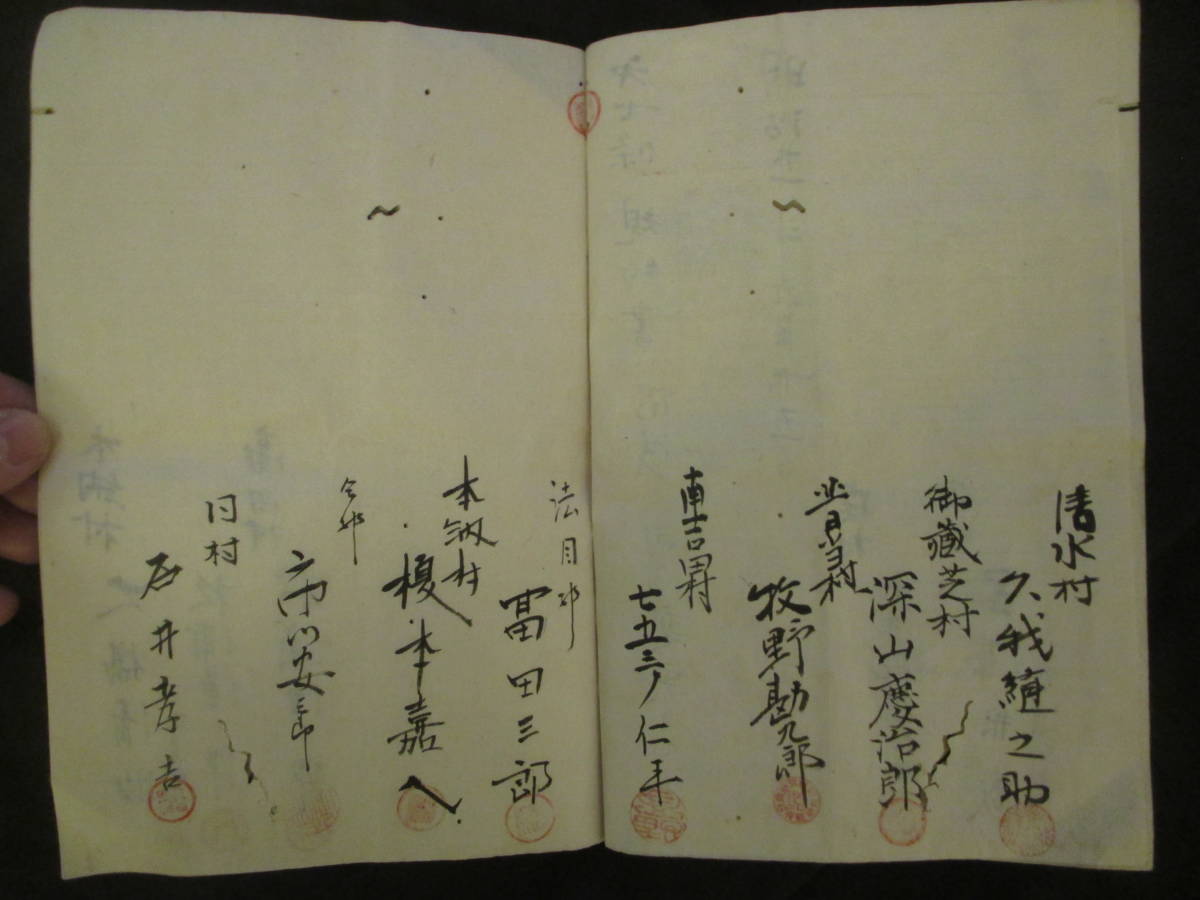 清水村
久我縫之助
御蔵芝村
深山慶治郎
牧野勘九郎
南吉田村
七五三ノ仁平
法目邨
冨田三郎
本納村
榎本嘉八
仝邨
市川安三郎
同村
石井孝吉